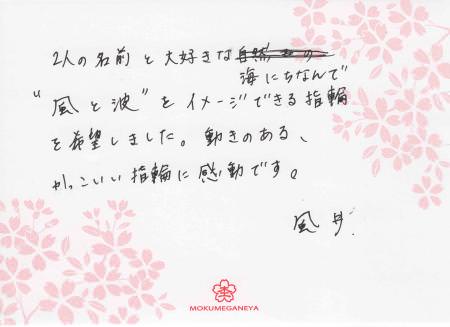 2人の名前と大好きな
海にちなんで
"風と波"をイメージできる指輪
を希望しました。動きのある、
かっこいい指輪に感動です。
MOKUMEGANEYA